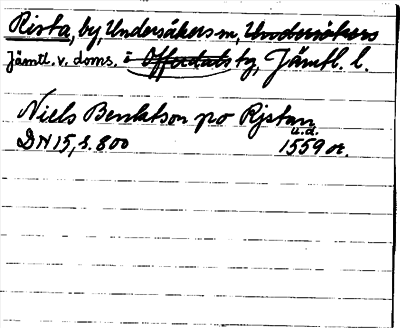 Rista, by, Undersåkers sn, Undersåkers
Jämtl. v. doms. o Offerdals tg, Jämtl. l.
Niels Benktson po Rjstan
u.d.
DN 15, s. 800 1559 or.